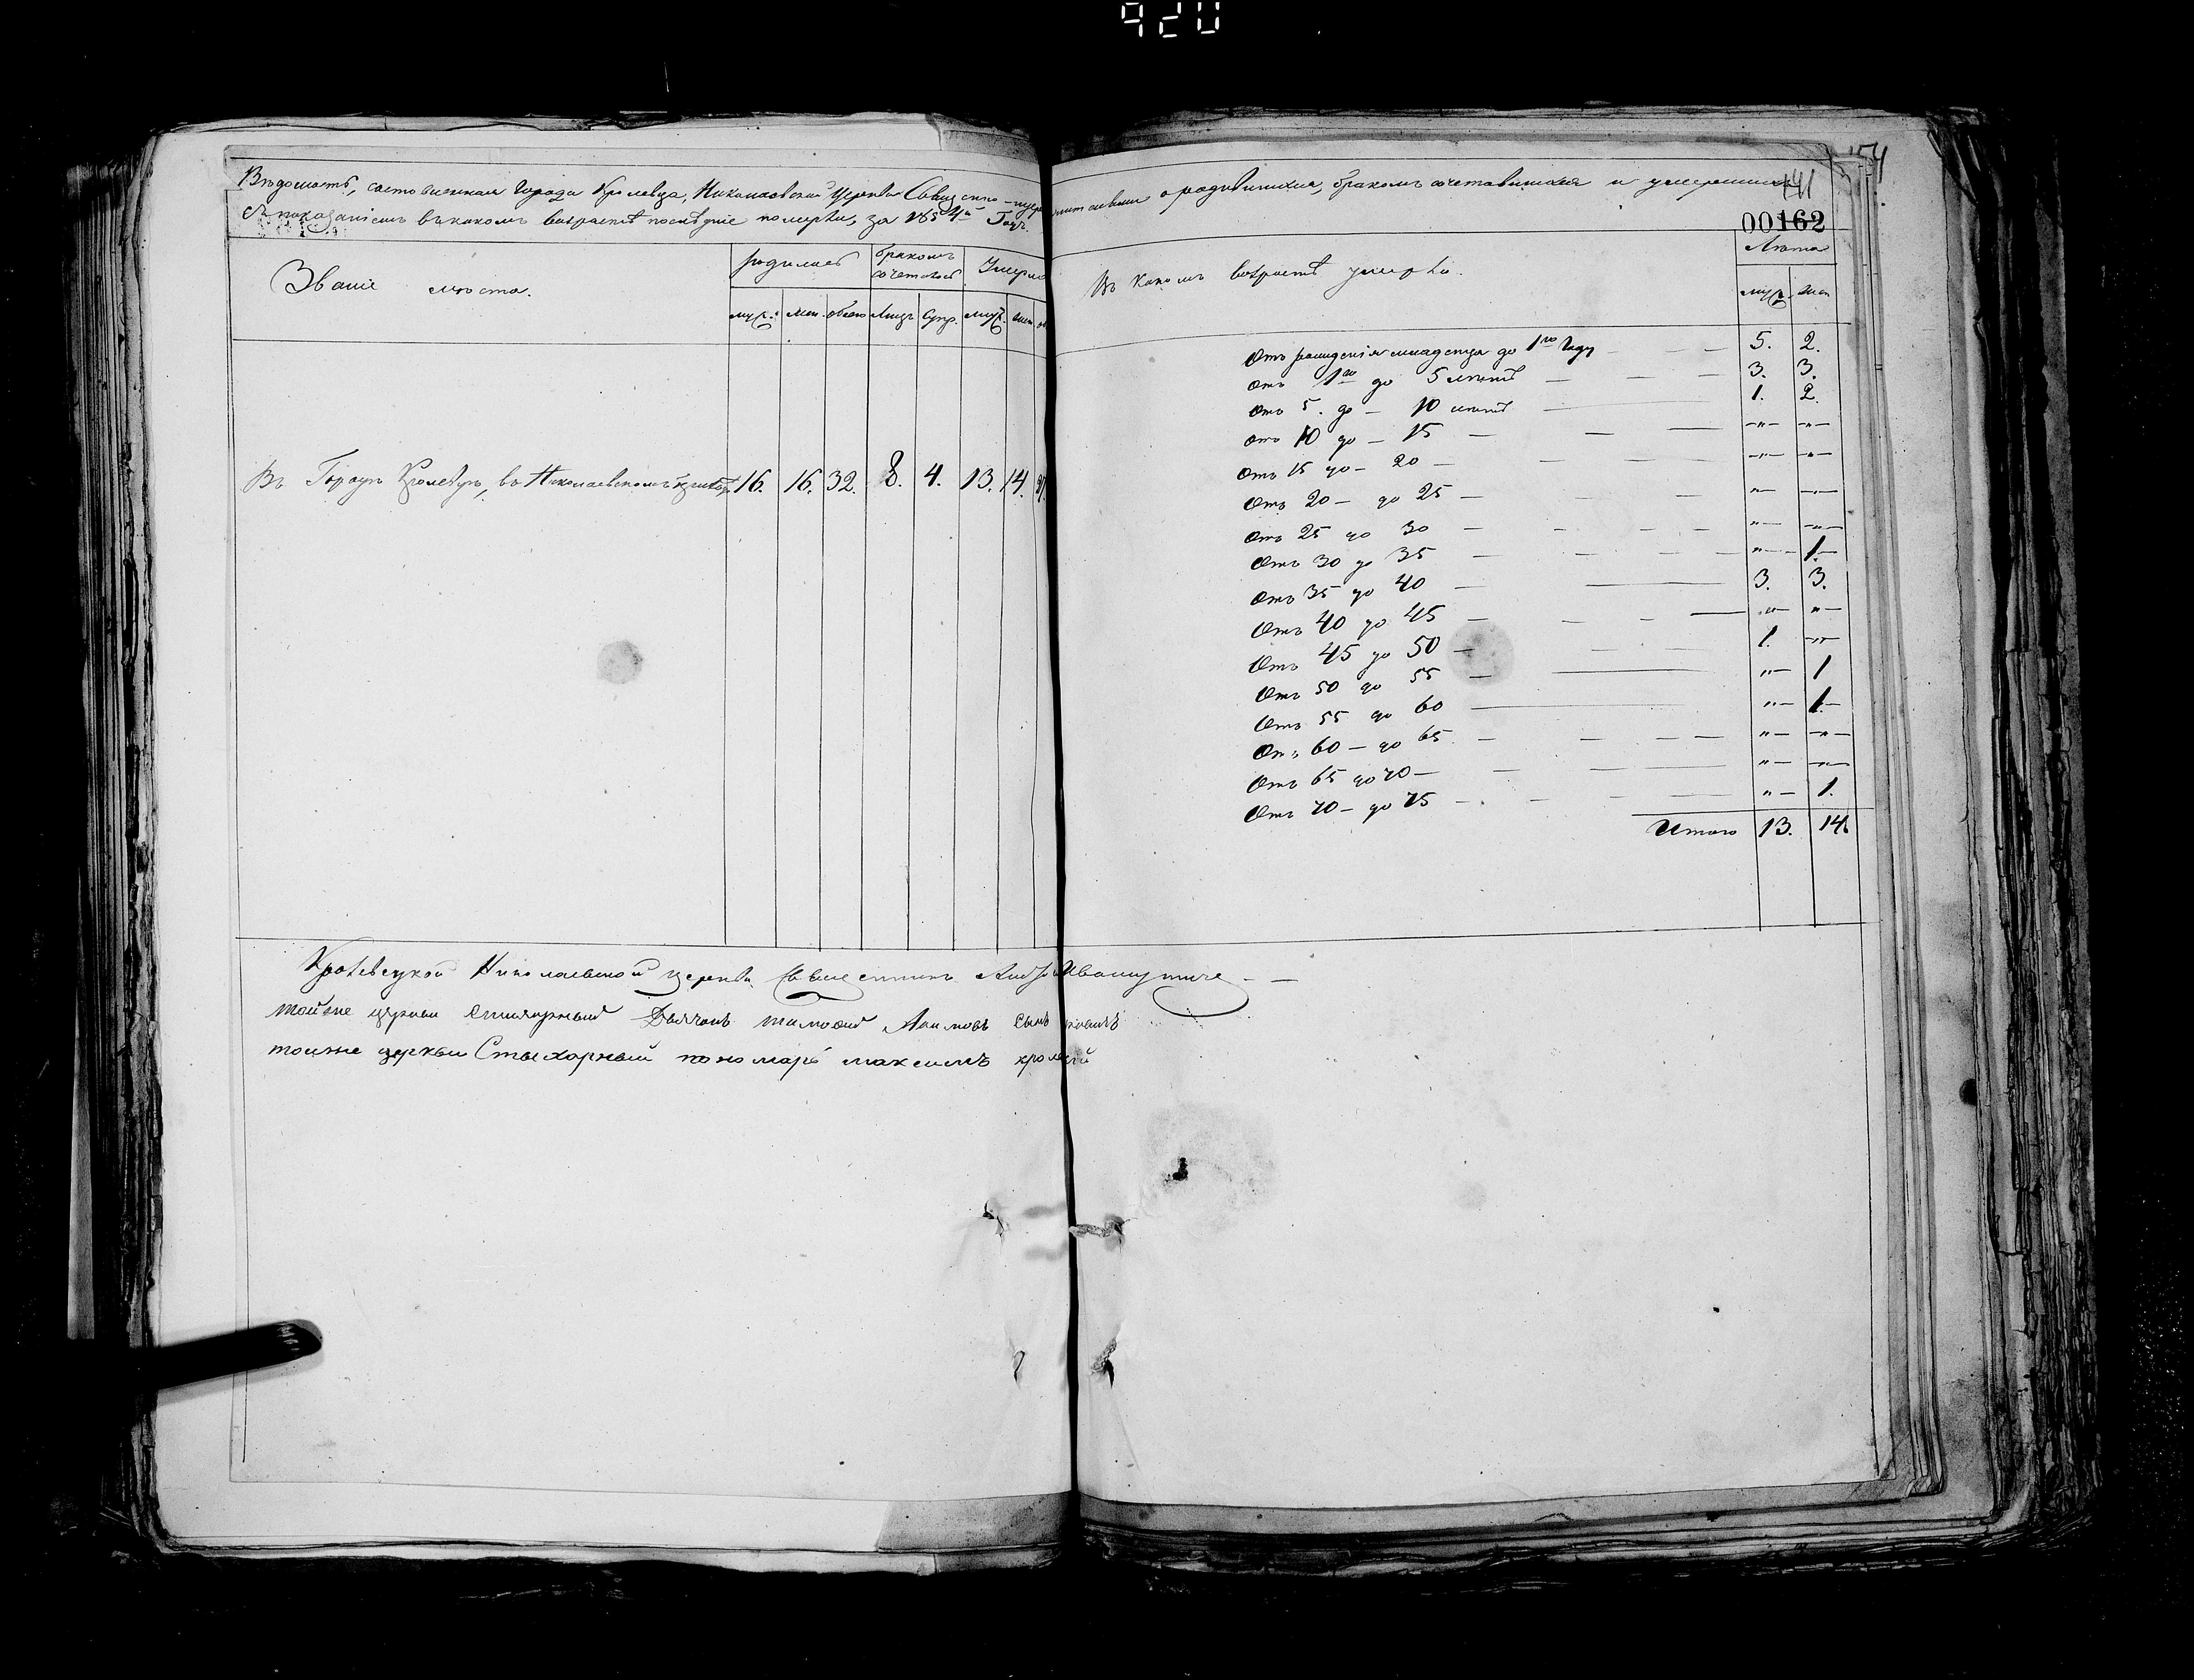 920
Вѣдомость, составленная Города Кролевца, Николаевской Церкви Священно-церковнослужителями о родившихся, бракомъ сочетавшихся и умершихъ
съ показаніемъ въ какомъ возрастѣ послѣдніе померли, за 1854й Годъ.
141
154
00162
Званіе мѣста.
родилось
бракомъ сочеталось
Умерло
муж. жен. обоего Лицъ Супр. муж. жен.
Въ какомъ возрастѣ умерли.
Лѣта
муж. жен
Въ Городѣ Кролевцѣ, въ Николаевскомъ 16. 16. 32. 8. 4. 13. 14. 27.
Отъ рожденія младенца до 1го Году — — 5. 2.
Отъ 1го до 5 лѣтъ — — — 3. 3.
Отъ 5. до — 10 лѣтъ — 1. 2.
Отъ 10 до — 15 — — — „ — „ —
Отъ 15 до — 20 — — — „ — „ —
Отъ 20 — до 25 — — — „ — „ —
Отъ 25 до 30 — — — „ — „ —
Отъ 30 до 35 — — — „ — 1. —
Отъ 35 до 40 — — 3. 3.
Отъ 40 до 45 — — — „ — „ —
Отъ 45 до 50 — — — 1. „
Отъ 50 до 55 — — „ — 1
Отъ 55 до 60 — „ — 1. —
Отъ 60 — до 65. — — — „ — „ —
Отъ 65 до 70 — — — „ — „ —
Отъ 70 — до 75 — — — „ — 1.
Итого 13. 14
Кролевецкой Николаевской церкви Священникъ
тойже церкви Стихарный Дьячокъ Тимофей сынъ
тойже церкви Стыхарный пономарь максимъ